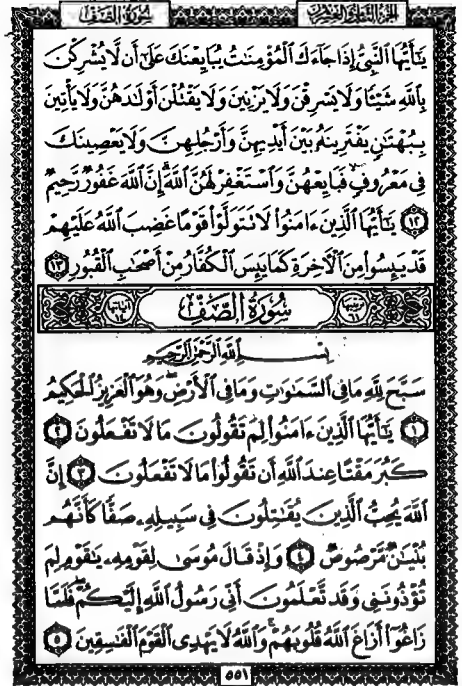 سُورَةُ الصَّفِّ الجزء الثامن والعشرون
يَـٰٓأَيُّهَا ٱلنَّبِىُّ إِذَا جَآءَكَ ٱلْمُؤْمِنَـٰتُ يُبَايِعْنَكَ عَلَىٰٓ أَن لَّا يُشْرِكْنَ
بِٱللَّهِ شَيْـًٔا وَلَا يَسْرِقْنَ وَلَا يَزْنِينَ وَلَا يَقْتُلْنَ أَوْلَـٰدَهُنَّ وَلَا يَأْتِينَ
بِبُهْتَـٰنٍ يَفْتَرِينَهُۥ بَيْنَ أَيْدِيهِنَّ وَأَرْجُلِهِنَّ وَلَا يَعْصِينَكَ
فِى مَعْرُوفٍ فَبَايِعْهُنَّ وَٱسْتَغْفِرْ لَهُنَّ ٱللَّهَ إِنَّ ٱللَّهَ غَفُورٌ رَّحِيمٌ
١٢ يَـٰٓأَيُّهَا ٱلَّذِينَ ءَامَنُوا۟ لَا تَتَوَلَّوْا۟ قَوْمًا غَضِبَ ٱللَّهُ عَلَيْهِمْ
قَدْ يَئِسُوا۟ مِنَ ٱلْـَٔاخِرَةِ كَمَا يَئِسَ ٱلْكُفَّارُ مِنْ أَصْحَـٰبِ ٱلْقُبُورِ ١٣
ترتيبها ٦١ سُورَةُ الصَّفِّ آياتها ١٤
بِسْمِ ٱللَّهِ ٱلرَّحْمَـٰنِ ٱلرَّحِيمِ
سَبَّحَ لِلَّهِ مَا فِى ٱلسَّمَـٰوَٰتِ وَمَا فِى ٱلْأَرْضِ وَهُوَ ٱلْعَزِيزُ ٱلْحَكِيمُ
١ يَـٰٓأَيُّهَا ٱلَّذِينَ ءَامَنُوا۟ لِمَ تَقُولُونَ مَا لَا تَفْعَلُونَ ٢
كَبُرَ مَقْتًا عِندَ ٱللَّهِ أَن تَقُولُوا۟ مَا لَا تَفْعَلُونَ ٣ إِنَّ
ٱللَّهَ يُحِبُّ ٱلَّذِينَ يُقَـٰتِلُونَ فِى سَبِيلِهِۦ صَفًّا كَأَنَّهُم
بُنْيَـٰنٌ مَّرْصُوصٌ ٤ وَإِذْ قَالَ مُوسَىٰ لِقَوْمِهِۦ يَـٰقَوْمِ لِمَ
تُؤْذُونَنِى وَقَد تَّعْلَمُونَ أَنِّى رَسُولُ ٱللَّهِ إِلَيْكُمْ فَلَمَّا
زَاغُوٓا۟ أَزَاغَ ٱللَّهُ قُلُوبَهُمْ وَٱللَّهُ لَا يَهْدِى ٱلْقَوْمَ ٱلْفَـٰسِقِينَ ٥
٥٥١